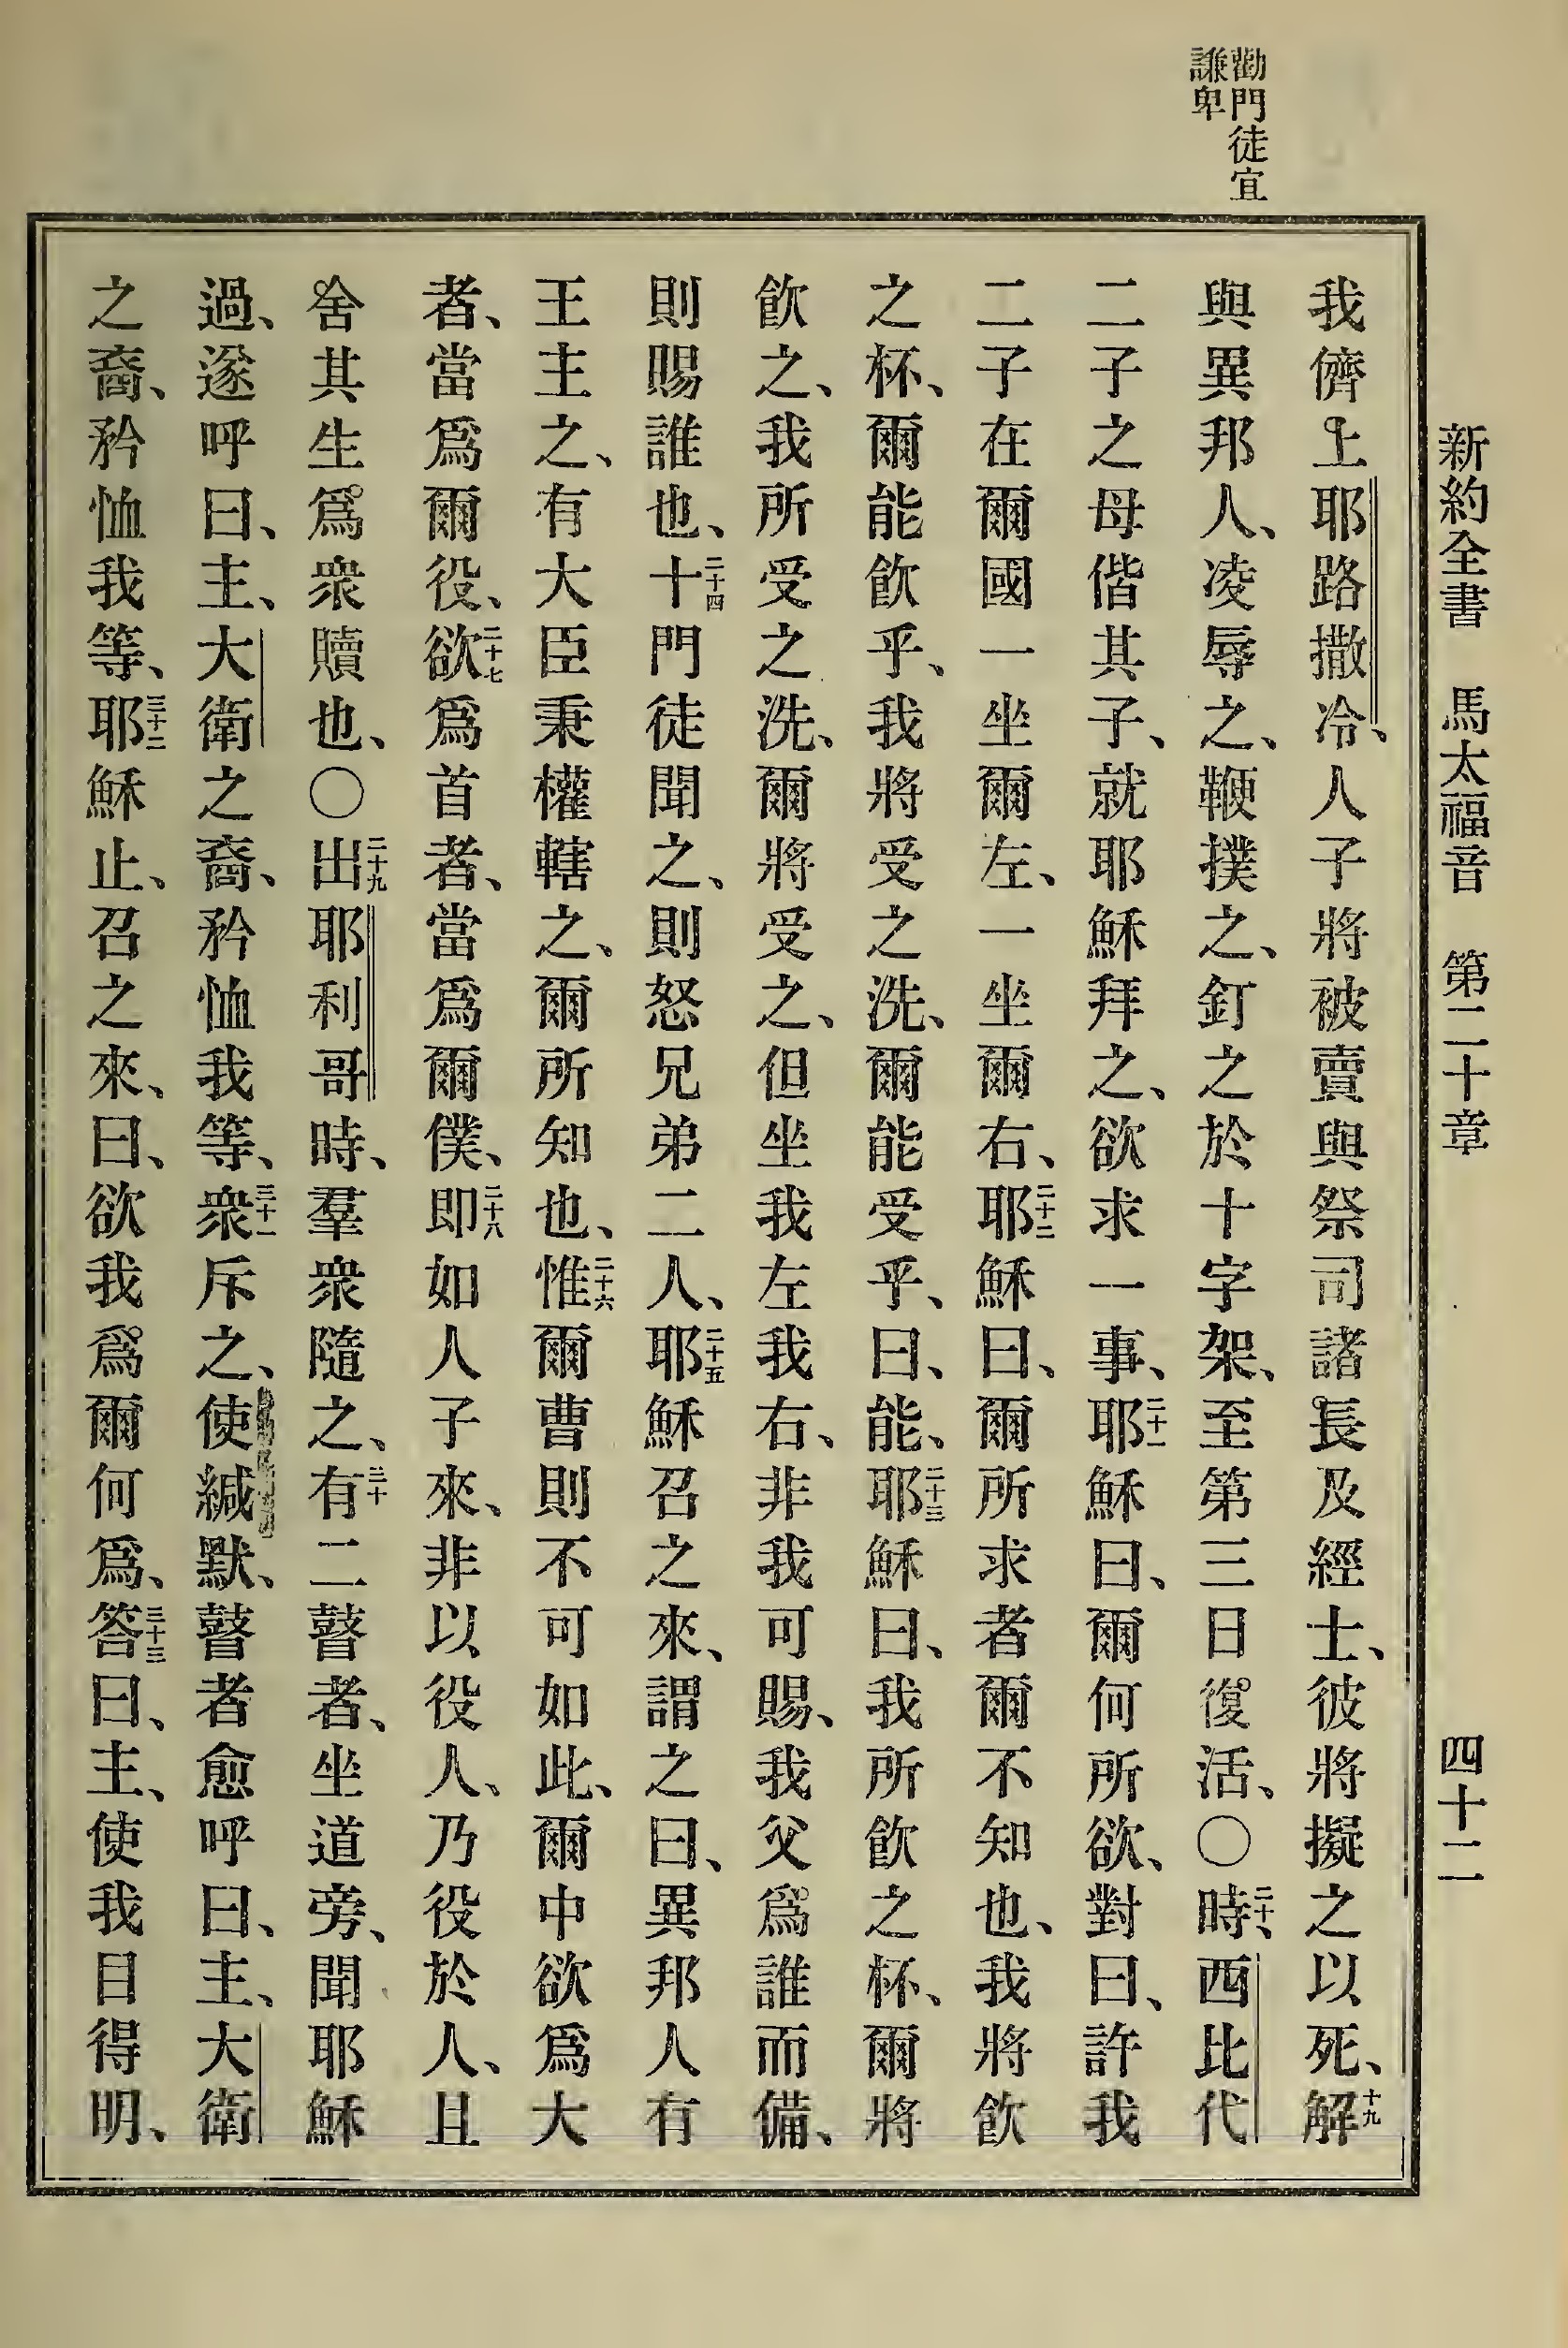 新約全書 馬太福音 第二十章 四十二
勸門徒宜
謙卑
我儕上耶路撒冷、人子將被賣與祭司諸長及經士、彼將擬之以死、十九解
與異邦人、凌辱之、鞭撲之、釘之於十字架、至第三日復活、〇二十時、西比代
二子之母偕其子、就耶穌拜之、欲求一事、二十一耶穌曰、爾何所欲、對曰、許我
二子在爾國一坐爾左、一坐爾右、二十二耶穌曰、爾所求者爾不知也、我將飲
之杯、爾能飲乎、我將受之洗、爾能受乎、曰、能、二十三耶穌曰、我所飲之杯、爾將
飲之、我所受之洗、爾將受之、但坐我左我右、非我可賜、我父爲誰而備、
則賜誰也、二十四十門徒聞之、則怒兄弟二人、二十五耶穌召之來、謂之曰、異邦人有
王主之、有大臣秉權轄之、爾所知也、二十六惟爾曹則不可如此、爾中欲爲大
者、當爲爾役、二十七欲爲首者、當爲爾僕、二十八即如人子來、非以役人、乃役於人、且
舍其生爲衆贖也、〇二十九出耶利哥時、羣衆隨之、三十有二瞽者、坐道旁、聞耶穌
過、遂呼曰、主、大衛之裔、矜恤我等、三十一衆斥之、使緘默、瞽者愈呼曰、主、大衛
之裔、矜恤我等、三十二耶穌止、召之來、曰、欲我爲爾何爲、三十三答曰、主、使我目得明、